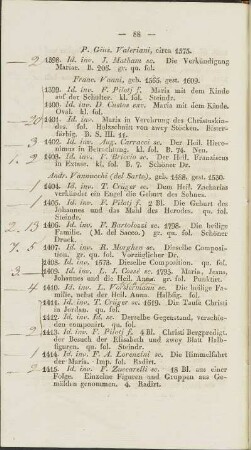 — 88 —
P. Gius. Valeriani, circa 1575.
1398. Id. inv. J. Matham sc. Die Verkündigung
Mariae. B. 206. gr. qu. fol.
Franc. Vanni, geb. 1565. gest. 1609.
1399. Id. inv. F. Pilotj f. Maria mit dem Kinde
auf der Schulter. kl. fol. Steindr.
1400. Id. inv. D. Custos exc. Maria mit dem Kinde.
Oval. kl. fol.
1401. Id. inv. Maria in Verehrung des Christuskin-
des. fol. Holzschnitt von zwey Stöcken. Einer-
färbig. B. S. III. 11.
1402. Id. inv. Aug. Carracci sc. Der Heil. Hiero-
nimus in Betrachtung. kl. fol. B. 74. Neu.
1403. Id. inv. F. Briccio sc. Der Heil. Franziscus
in Extase. kl. fol. B. 7. Schöner Dr.
Andr. Vannucchi (del Sarto), geb. 1488. gest. 1530.
1404. Id. inv. T. Crüger sc. Dem Heil. Zacharias
verkündet ein Engel die Geburt des Sohnes.
1405. Id. inv. F. Piloti f. 2 Bl. Die Geburt des
Johannes und das Mahl des Herodes. qu. fol.
Steindr.
1406. Id. inv. F. Bartolozzi sc. 1798. Die heilige
Familie. (M. del Sacco.) gr. qu. fol. Schöner
Druck.
1407. Id. inv. R. Morghen sc. Dieselbe Composi-
tion. gr. qu. fol. Vorzüglicher Dr.
1408. Id. inv. 1573. Dieselbe Composition. qu. fol.
1409. Id. inv. L. J. Cossé sc. 1793. Maria, Jesus,
Johannes und die Heil. Anna. gr. fol. Punktirt.
1410. Id. inv. L. Vorstermann sc. Die heilige Fa-
milie, nebst der Heil. Anna. Halbfig. fol.
1411. Id. inv. T. Crüger sc. 1618. Die Taufe Christi
im Jordan. qu. fol.
1412. Id. inv. Id. sc. Derselbe Gegenstand, verschie-
den componirt. qu. fol.
1413. Id. inv. F. Piloti f. 4 Bl. Christi Bergpredigt,
der Besuch der Elisabeth und zwey Blau Halb-
figuren. qu. fol. Steindr.
1414. Id. inv. F. A. Lorenzini sc. Die Himmelfahrt
der Maria. Imp. fol. Radirt.
1415. Id. inv. F. Zuccarelli sc. 18 Bl. aus einer
Folge. Einzelne Figuren und Gruppen aus Ge-
mälden genommen. 4. Radirt.